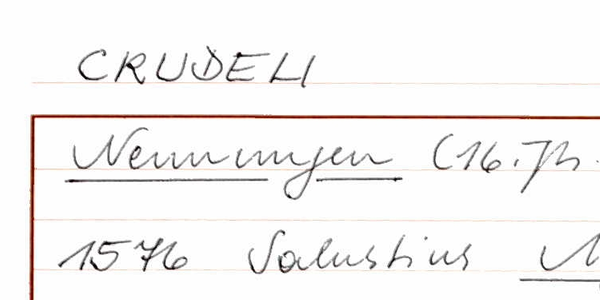 CRUDELI
Nennungen (16. Jh.
1576 Salustius